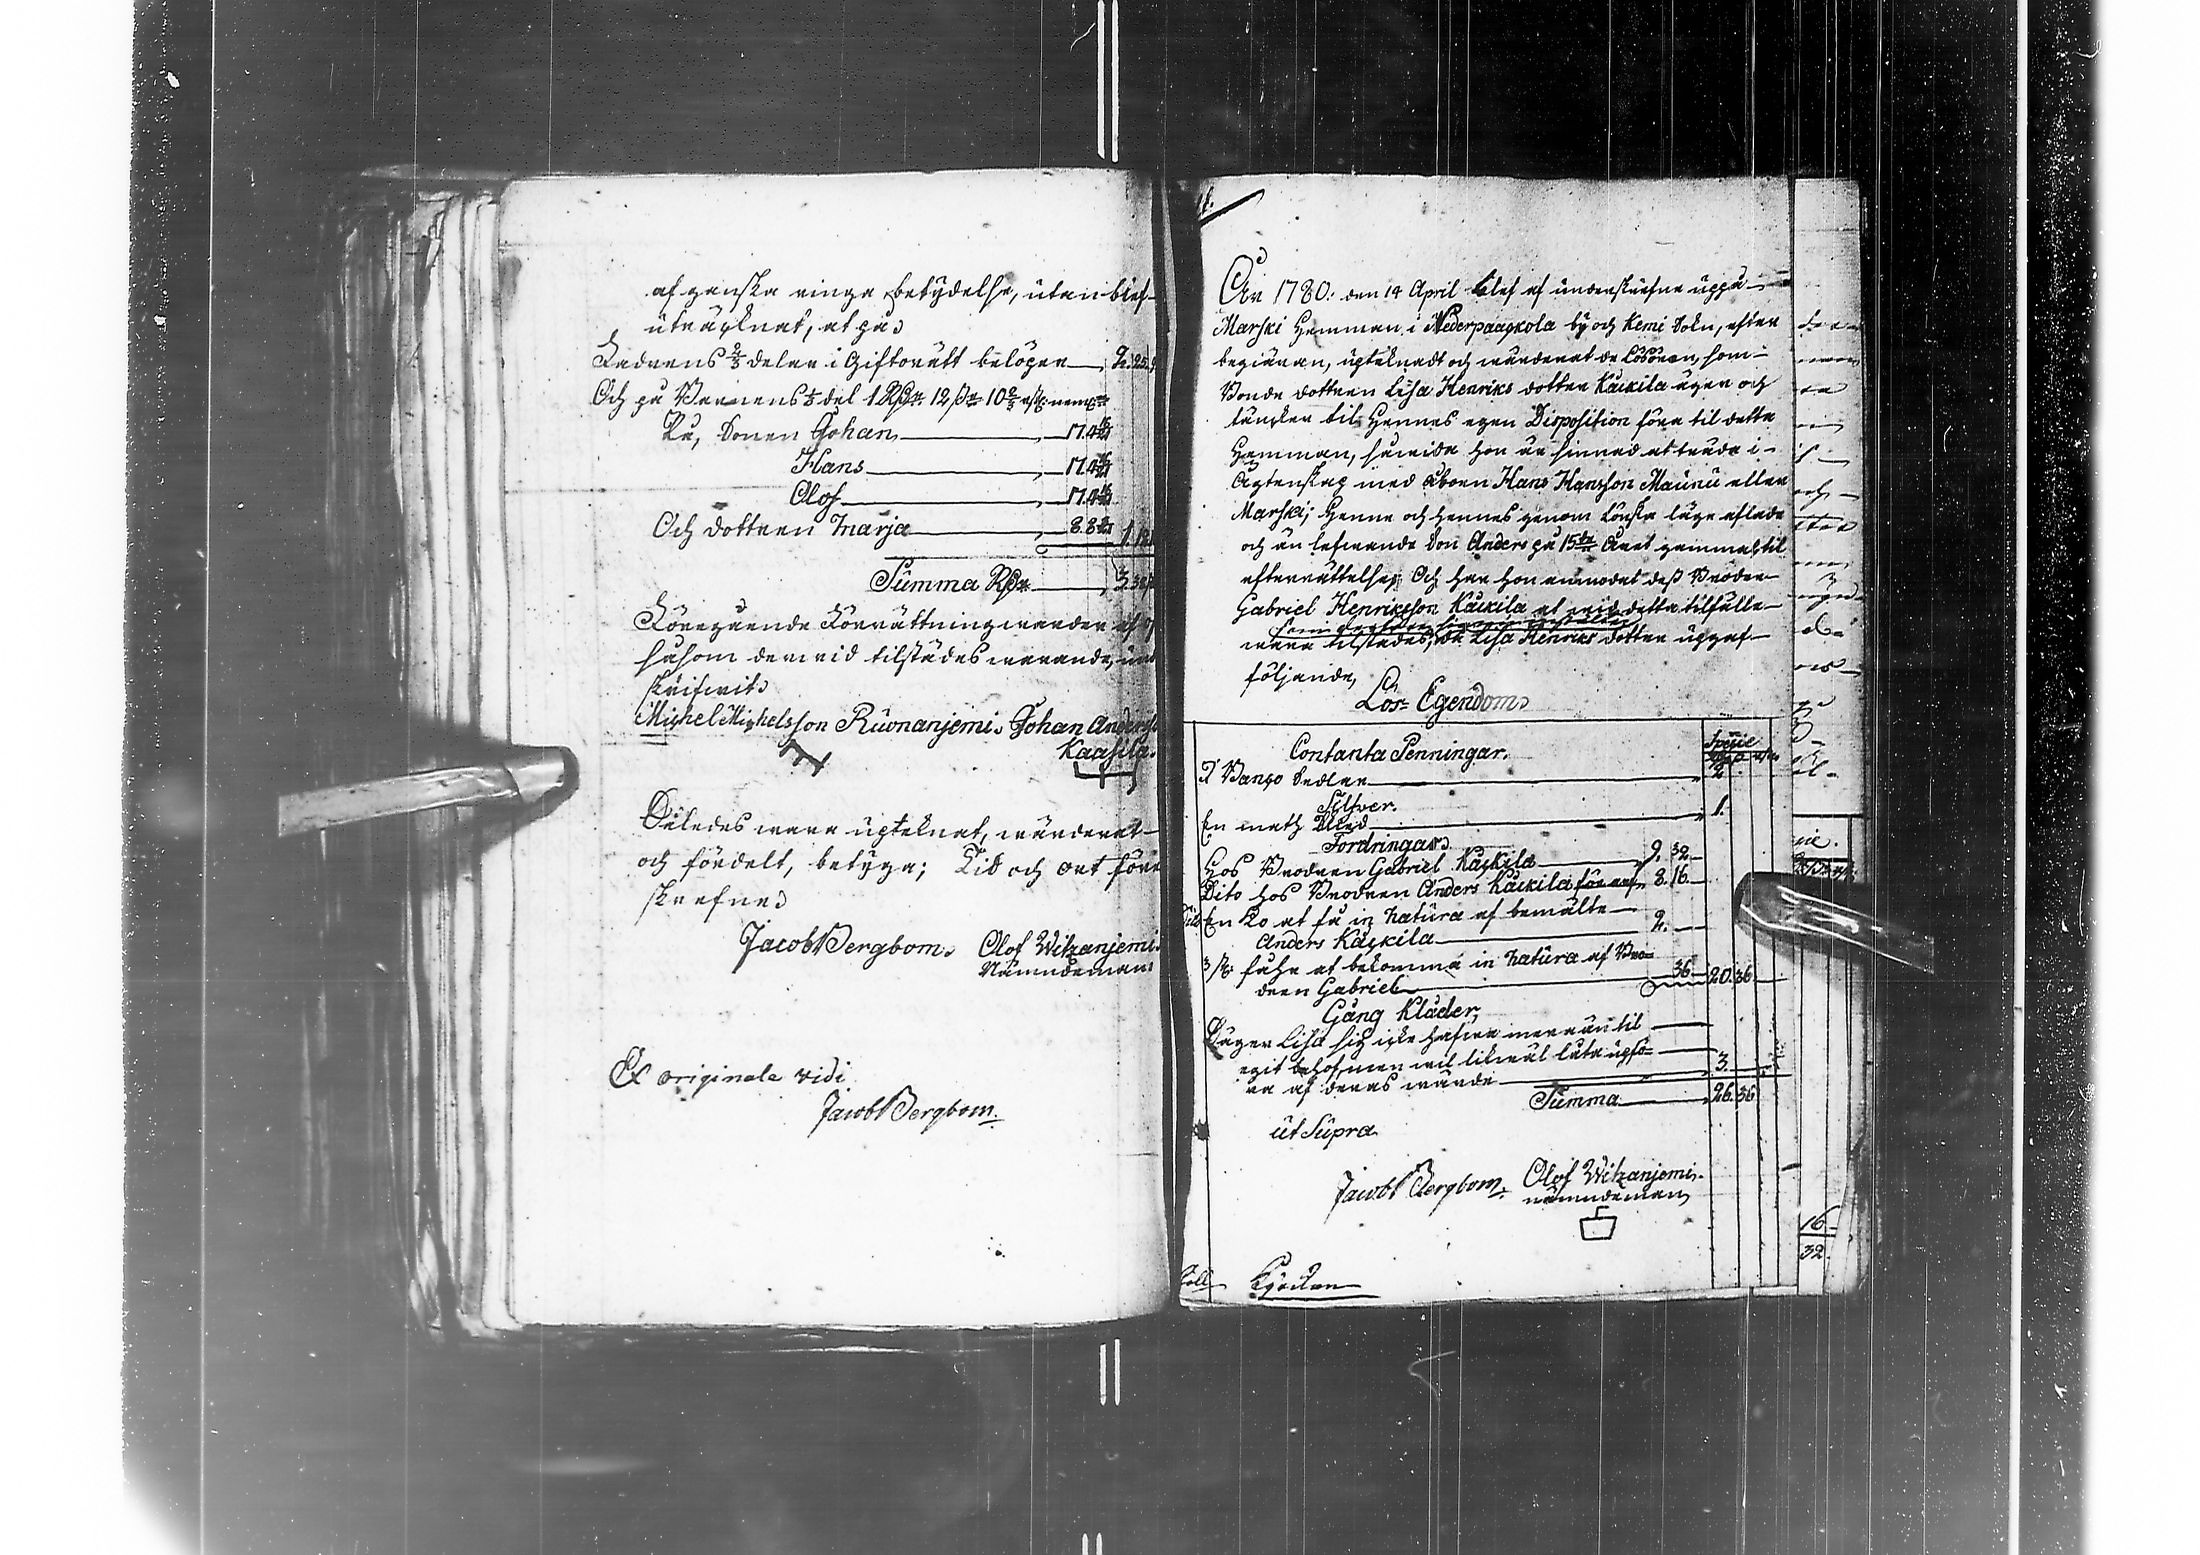 af ganska ringa betydelse, utan blef
uträknat, at på
Fadrens 2/3 delar i Giftorätt belöper 2. 25.
Och på Barnens 1/3 del 1 Rdr 12 ß 10 2/3 rst. neml.
På, Sonen Johan 17.4
Hans 17.4
Olof 17.4
Och dottren Marja 8.8
Summa Rdr 3.38
Föregående Förrättning warder af
såsom derwid tilstädes warande, und
skrifwit.
Michel Michelsson Ruonanjemi. Johan Anders
Kaakila.
Således wara upteknat, wärderat
och fördelt, betyga; Tid och ort förr
skrefne
Jacob Bergbom. Olof Witzanjemi.
Nämndeman
Ex originale vidi
Jacob Bergbom.
År 1780. den 14 April blef af underskrefne uppå
Marski Hemman i Nederpaackola by och Kemi Sokn, efter
begiäran, upteknadt och wärderat de Lösören, som
Bonde dottren Lisa Henriks dotter Käckilä äger och
täncker til Hennes egen Disposition föra til detta
Hemman, såwida hon är sinnad at träda i
Ägtenskap med Åboen Hans Hansson Maunu eller
Marski; Henne och hennes genom Lönska läge aflade
och än lefwande Son Anders på 15de Året gammal, til
efterrättelse; Och har hon anmodat dess Broder
Gabriel Henriksson Käckilä at wid detta tilfälle
wara tilstädes, då Lisa Henriks dotter uppgaf
följande,
Lös Egendom
Contanta Penningar. Specie
I Banco Sedlar 2
Silfver.
En math Sked 1.
Fordringar
Hos Brodren Gabriel Käckilä 9. 32
Dito hos Brodren Anders Käckilä 8. 16
En Ko at få in natura af bemälte
Anders Käckilä 2.
3 st. fåhr at bekomma in natura af Bro-
dren Gabriel 36 20. 36
Gång Kläder,
Säger Lisa sig icke hafwa mera än til
egit behof, men wil likwäl låta upfö-
ra af deras wärde 3
Summa 26. 36
ut Supra
Jacob Bergbom. Olof Witzanjemi.
nämndeman
16
32.